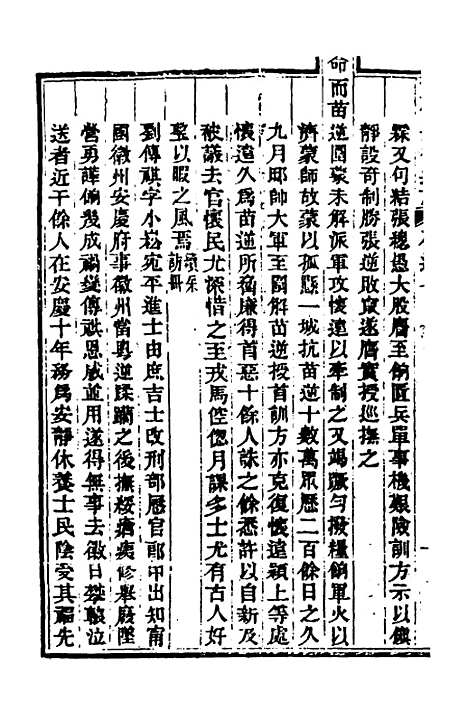 霖又句結張總愚大股麕至餉匱兵單事機艱險訓方示以鎭
靜設奇制勝張逆敗竄遂膺實授巡撫之
命而苗逆圍蒙未解派軍攻懷遠以牽制之又竭蹶勻撥糧餉軍火以
濟蒙師故蒙以孤縣一城抗苗逆十數萬眾歷二百餘日之久
九月邸帥大軍至圍解苗逆授首訓方亦克復懷遠潁上等處
懷遠久爲苗逆所脅廉得首惡十餘人誅之餘悉許以自新及
被議去官懷民尤深惜之至戎馬倥傯月課多士尤有古人好
整以暇之風焉續采訪冊
劉傳祺字小崧宛平進士由庶吉士改刑部歷官郎中出知南
國徽州安慶府事徽州當粵逆蹂躪之後撫綏瘡痍修舉廢墜
營勇譁餉幾成禍變傳祺恩威並用遂得無事去徽日攀轅泣
送者近千餘人在安慶十年務爲安靜休養士民陰受其福先